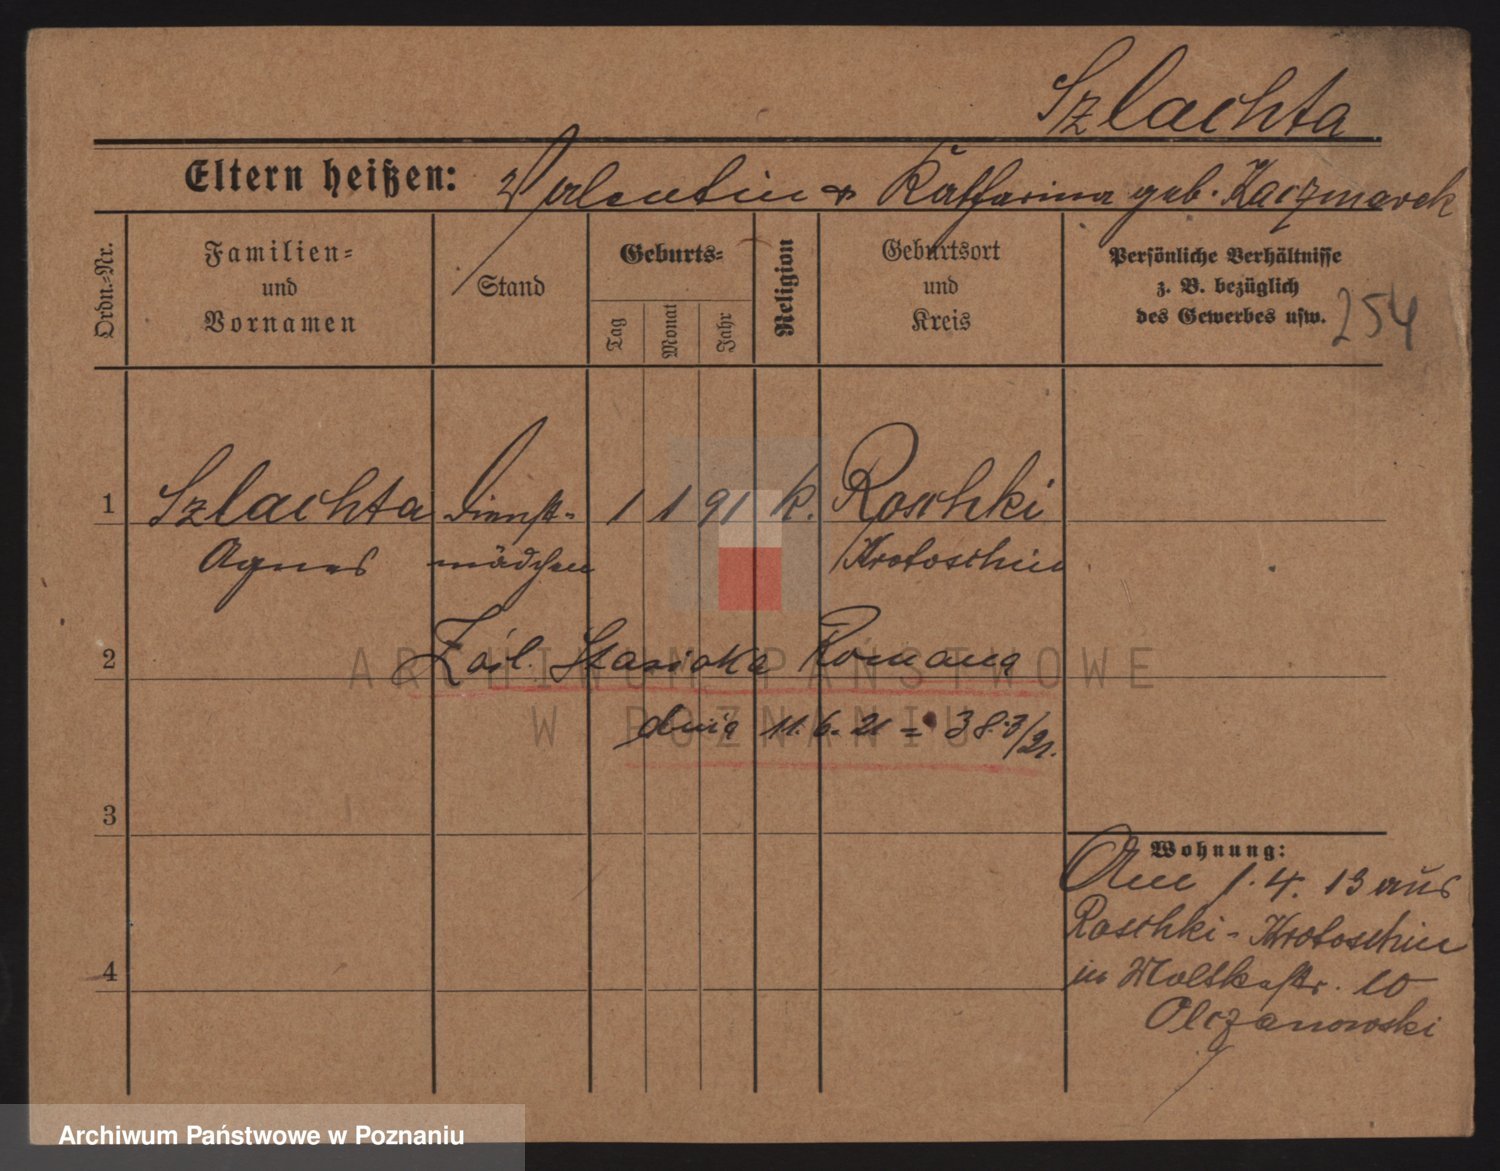 Szlachta
Eltern heißen: Valentin & Katharina geb. Kaczmarek
Ordn.-Nr.
Familien-
und
Vornamen
Stand
Geburts-
Tag
Monat
Jahr
Religion
Geburtsort
und
Kreis
Persönliche Verhältnisse
z. B. bezüglich
des Gewerbes usw.
254
1 Szlachta Dienst- 1 1 91 k. Roschki
Agnes mädchen Krotoschin
2 Zaśl. Stasiaka Romana
dnia 11. 6. 21 = 383/21.
3
4
Wohnung:
Am 1. 4. 13 aus
Roschki - Krotoschin
in Moltkestr. 10
Olczanowski
ARCHIWUM PAŃSTWOWE
W POZNANIU
Archiwum Państwowe w Poznaniu